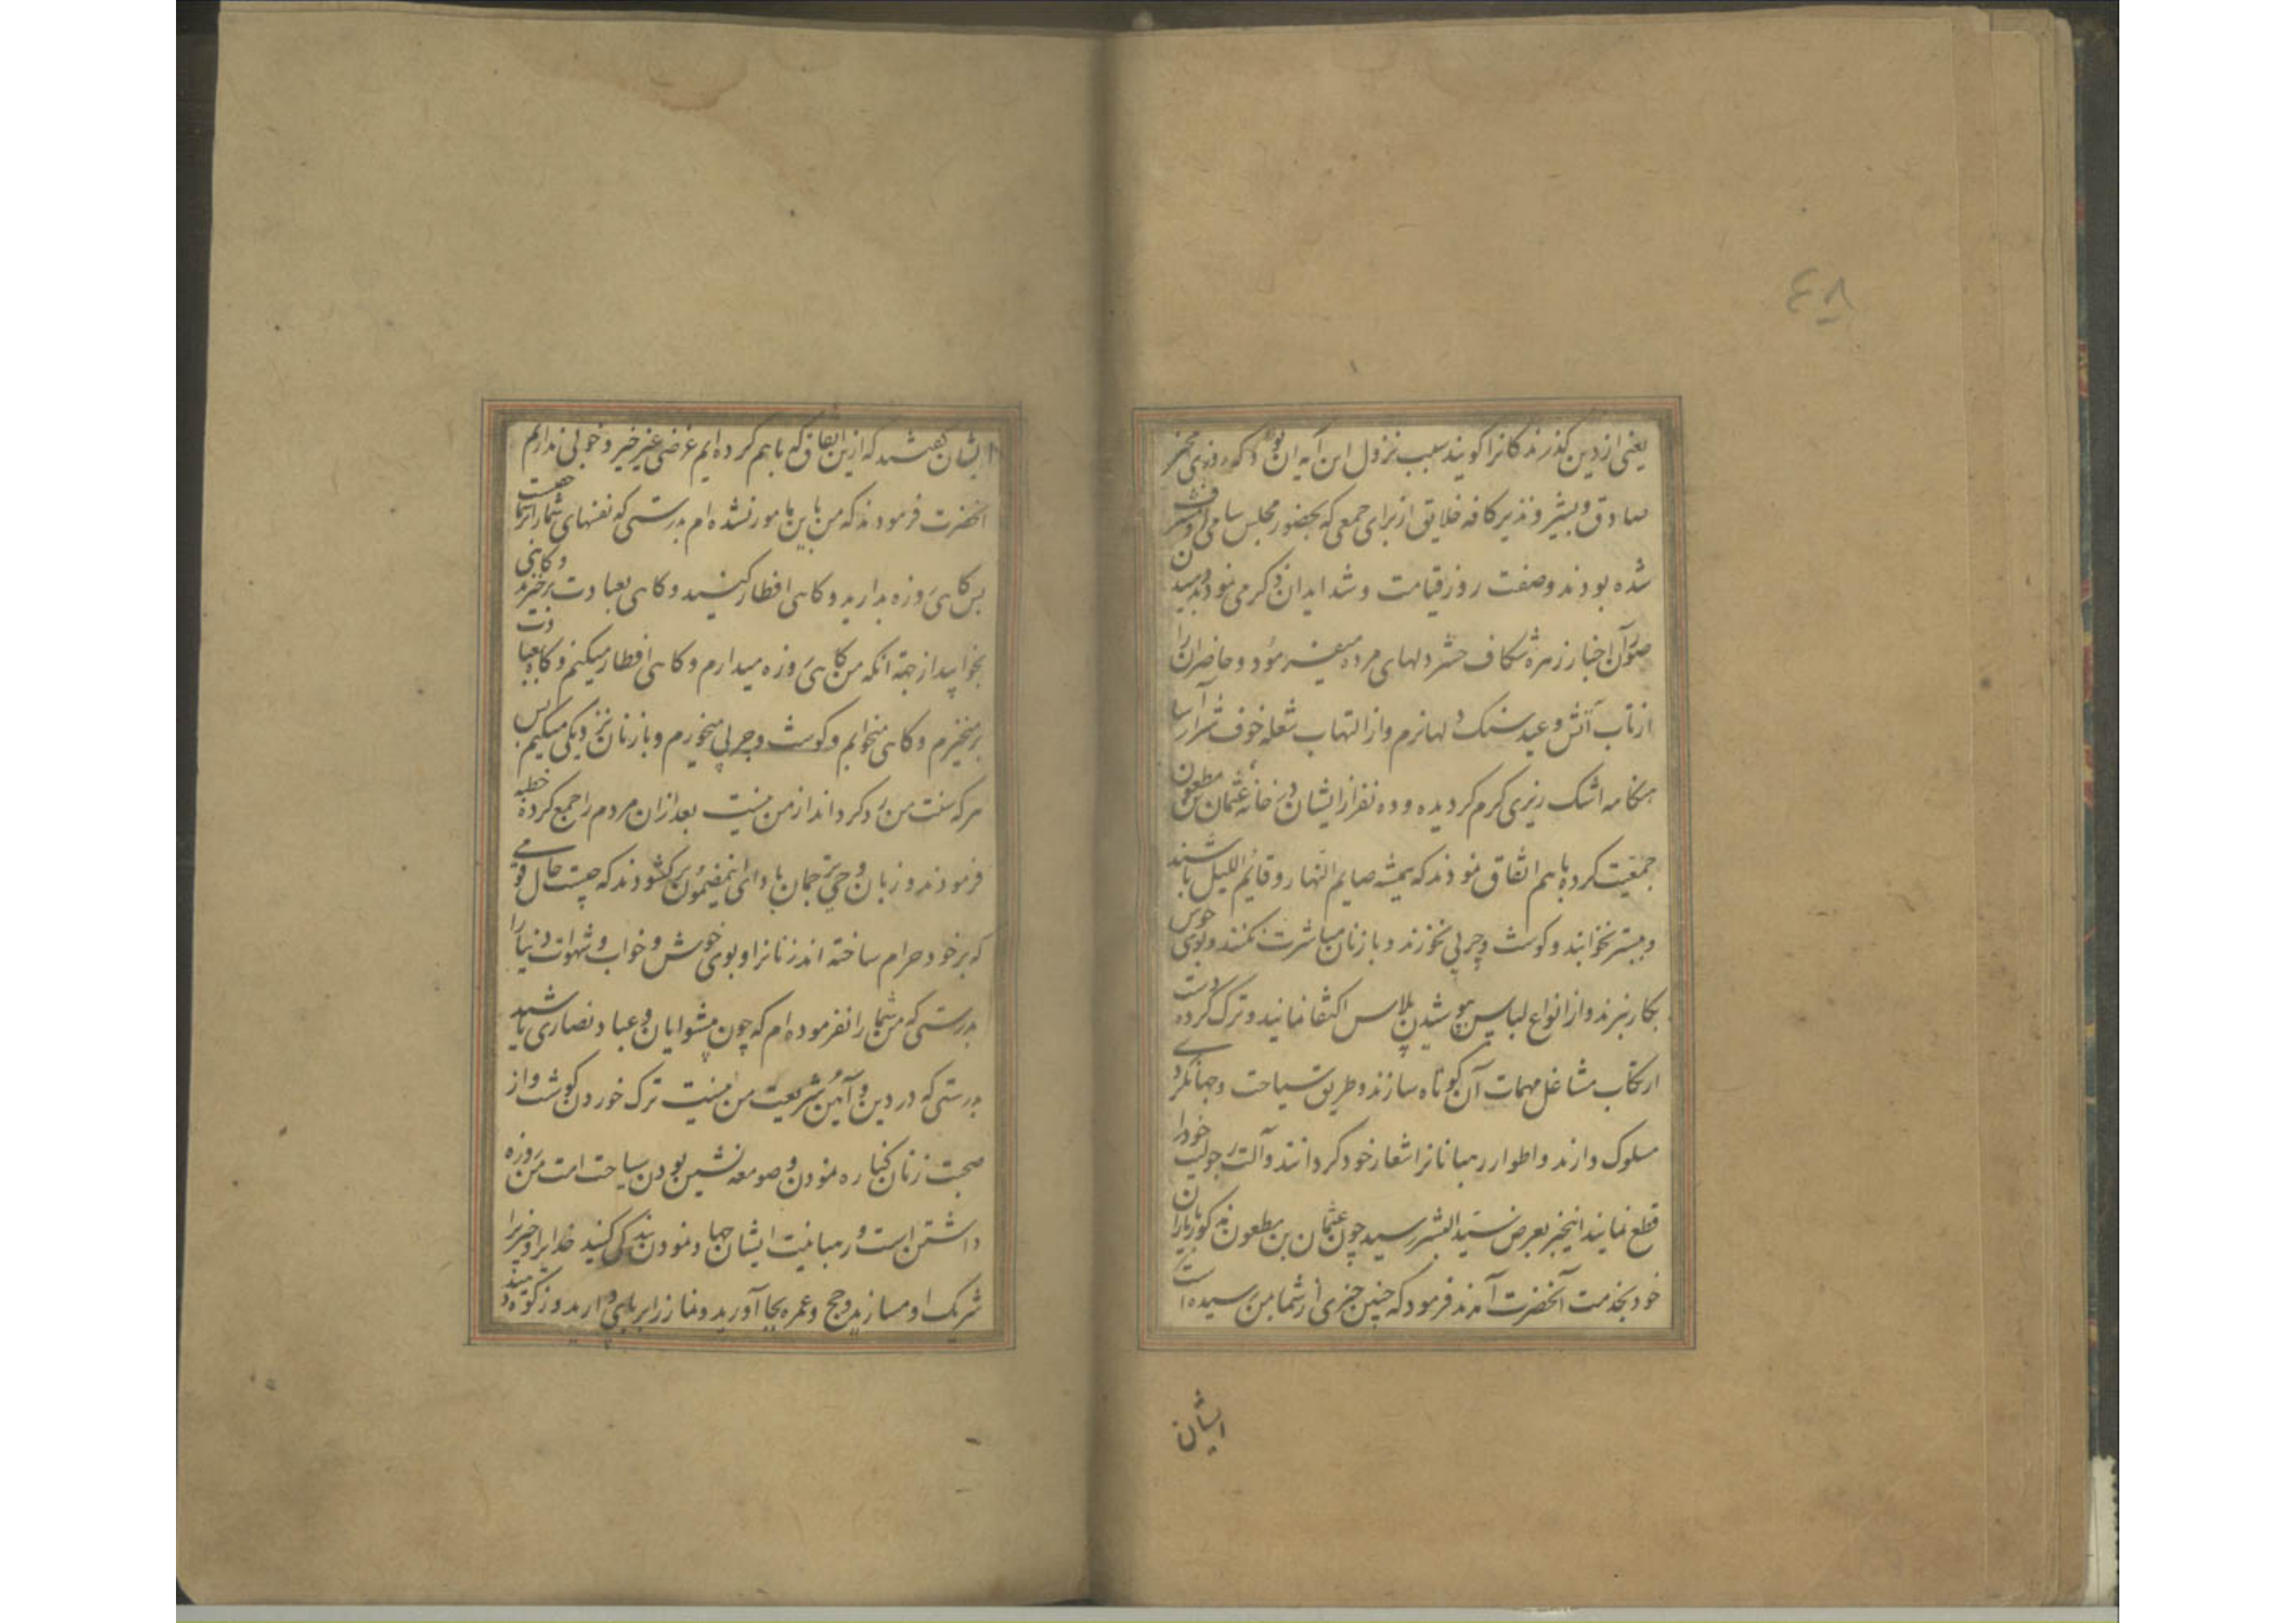 ۴۸
یعنی از دین گذرندکانرا کویند سبب نزول این آیه آن بود که روزی مخبر
صادق و بشیر و نذیر کافه خلایق از برای جمعی که بحضور مجلس سامی مشرف
شده بودند وصفت روز قیامت و شداید آن ذکر می نمودند و بمیدن
صور آن اخبار زهره شکاف حشر دلهای مرده میفرمود و حاضران را
از تاب آتش وعید سنک دلها نرم و از التهاب شعله خوف شرار آسا
هنکامه اشک ریزی کرم کردیده و ده نفر از ایشان در خانه عثمان بن مطعون
جمعیت کرده باهم اتفاق نمودند که همیشه صایم النهار و قائم اللیل باشند
و ببستر نخوابند و کوشت و چربی نخورند و با زنان مباشرت نکنند و بوی خوس
بکار نبرند و از انواع لباس بپوشیدن پلاس اکتفا نمایند و ترک کرده دست
ارتکاب مشاغل مهمات آن کوتاه سازند و طریق سیاحت و جهانکردی
مسلوک دارند و اطوار رهبانانرا شعار خود کردانند و آلت رجولیت خودرا
قطع نمایند اینخبر بعرض سید البشر رسید چون عثمان بن مطعون مذکور بایاران
خود بخدمت آنحضرت آمدند فرمود که چنین چیزی از شما بمن رسیده است
ایشان
ایشان کفتند که ازین اتفاق که باهم کرده ایم غرضی غیر خیر و خوبی نداریم
آنحضرت فرمودند که من باین مامور نشده ام بدرستی که نفسهای شمارا بر شما حقست
پس کاهی روزه بدارید و کاهی افطار کنید و کاهی بعبادت برخیزید و کاهی
بخوابید از جهة آنکه من کاهی روزه میدارم و کاهی افطار میکنم و کاه بعبادت
برمیخیزم و کاهی میخوابم و کوشت و چربی میخورم و با زنان نزدیکی میکنم پس
هرکه سنت من رد کرداند از من نیست بعد ازان مردم را جمع کرده خطبه
فرمودند و زبان وحی ترجمان بادای اینمضمون برکشودند که چیست حال قومی
که بر خود حرام ساخته اند زنانرا و بوی خوش و خواب و شهوات دنیا را
بدرستی که من شمارا نفرموده ام که چون پیشوایان و عباد نصاری باشید
بدرستی که در دین و آیین شریعت من نیست ترک خوردن کوشت و از
صحبت زنان کناره نمودن و صومعه نشین بودن سیاحت امت من روزه
داشتن است و رهبانیت ایشان جهاد نمودن بندکی کنید خدایرا و چیزیرا
شریک او مسازید و حج و عمره بجا آورید و نماز را برپای دارید و زکوة بدهید